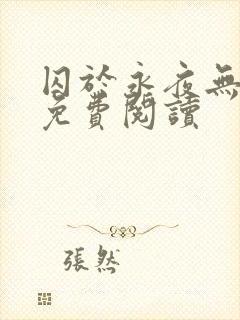 囚於永夜無
免費閱讀
張然